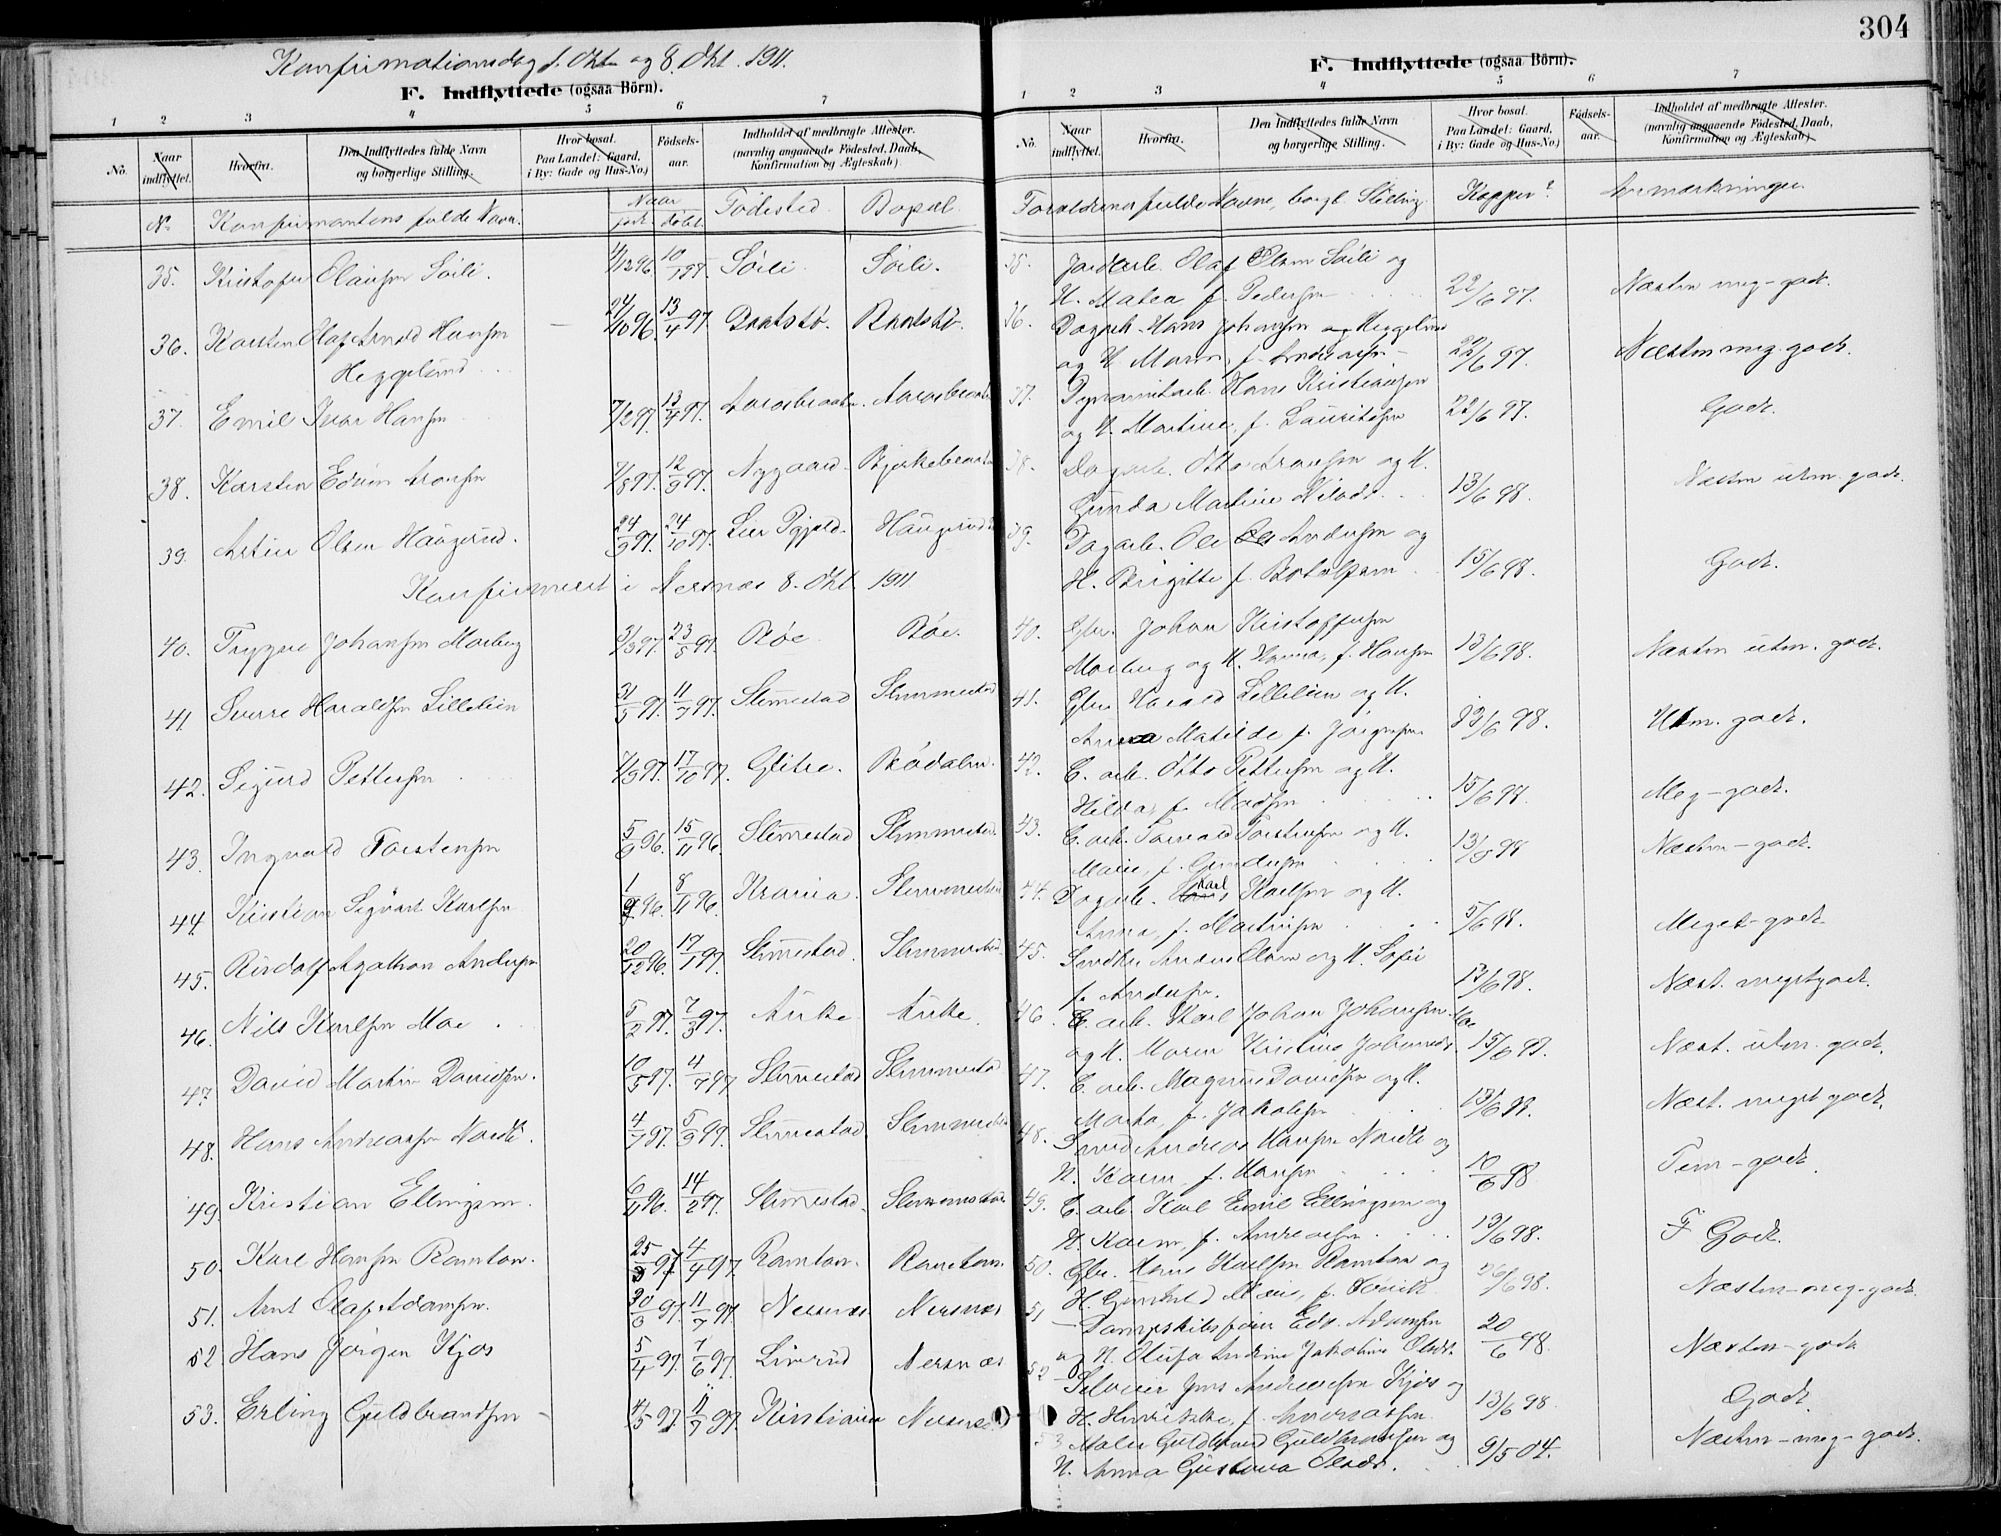 304
Konfirmationsdag 1. Okt. og 8. Okt. 1911.
F. Indflyttede (ogsaa Börn).
1 2 3 4 5 6 7
No. Naar indflyttet. Hvorfra. Den Indflyttedes fulde Navn og borgerlige Stilling. Hvor bosat. Paa Landet: Gaard, i By: Gade og Hus-No.) Födsels-aar. Indholdet af medbragte Attester. (navnlig angaaende Födested, Daab, Konfirmation og Ægteskab)
No Konfirmantens fulde Navn. Naar født døbt. Fødested. Bopæl.
35. Kristofer Olausen Sõili. 4/12 96. Søili. Søili.
36. Karsten Olaf Arnold Hansen 24/10 96. 13/4 97. Baatstø. Baatstø.
Heggelund
37. Emil Ivar Hansen 7/2 97. 13/4 97. Aarosbraaten. Aarosbraaten
38. Karsten Edvin Aronsen 7/8 97. 12/9 97. Nygaard. Bjerkebraaten
39. Artur Olsen Haugerud. 24/9 97. 24/10 97. Haugerud
Konfirmeret i Nersnæs 8. Okt. 1911
40. Trygve Johansen Morberg 3/3 97. 23/5 97. Bøe. Bøe.
41. Sverre Haraldsen Lillelien 31/5 97. 11/7 97. Slemmestad Slemmestad
42. Sigurd Pettersen 7/9 97. 17/10 97. Glitre. Bødalen.
43. Ingvald Torstensen 5/9 96. 15/11 96. Slemmestad Slemmestad.
44. Kristian Sigvart Karlsen 8/11 96. Krania. Slemmestad
45. Rudolf Agathon Andersen 20/12 96. 17/1 97. Slemmestad. Slemmestad.
46. Nils Karlsen Moe 5/2 97. 7/3 97. Auke Auke.
47. David Martin Davidsen. 10/5 97. 4/7 97. Slemmestad Slemmestad
48. Hans Andreasen Nordli. 4/7 97. 5/9 97. Slemmestad. Slemmestad
49. Kristian Ellingsen. 14/2 97. Slemmestad. Slemmestad
50. Karl Hansen Ramton. 25/3 97. 4/4 97. Ramton. Ramton.
51. Arnt Olaf Adamsen. 11/7 97. Nersnæs Nersnæs
52. Hans Jørgen Kjos 5/4 97. 7/6 97. Linrud Nersnæs
53. Erling Guldbrandsen 4/5 97. 11/7 97. Kristiania Nersnæs
F. Indflyttede (ogsaa Börn).
1 2 3 4 5 6 7
No. Naar indflyttet. Hvorfra. Den Indflyttedes fulde Navn og borgerlige Stilling. Hvor bosat. Paa Landet: Gaard, i By: Gade og Hus-No.) Födsels-aar. Indholdet af medbragte Attester. (navnlig angaaende Födested, Daab, Konfirmation og Ægteskab)
Forældrenes fulde Navne, borgl. Stilling. Kopper? Anmærkninger.
35. Jordarb. Olaf Olsen Søili og
H. Matea f. Pedersen 22/6 97. Næsten meg-godt.
36. Dagarb. Hans Johansen Heggelund
og H. Maren, f. Andreassen 22/6 97. Næsten meg. godt.
37. Dynamitarb. Hans Kristiansen
og H. Martine, f. Lauritsen 22/6 97. Godt.
38. Dagarb. Otto Aronsen og H.
Gunda Martine Nilsdt. 13/6 98. Næsten utm. godt.
39. Dagarb. Ole Andersen og
H. Birgitte f. Botolfsen 15/6 98. Godt.
40. Gbr. Johan Kristoffersen
Morberg og H. Hanna, f. Hansen 13/6 98. Næsten utm. godt.
41. Gbr. Harald Lillelien og H.
Anna Matilde f. Jørgensen 98. Utm. godt.
42. C. arb. Otto Pettersen og H.
Hilda, f. Madsen 15/6 98. Meg-godt.
43. C. arb. Torvald Torstensen og H.
Marie, f. Gundersen 98 Næsten-godt.
44. Dagarb. Karl Karlsen og H.
Anna, f. Martinsen 5/6 98. Meget-godt
45. Snedker Anders Olsen og H. Sofie
f. Andersen. 13/6 98. Næst. megetgodt.
46. C. arb. Karl Johan Johansen Moe
og H. Maren Kristine Johannesdt. 15/6 98. Næst. utm. godt.
47. C. arb. Magnus Davidsen og H.
Marta, f. Jakobsen 13/6 98. Næst. meget godt.
48. Smed Andreas Hansen Nordli og
H. Karen, f. Hansen 10/6 98 Tem-godt
49. C. arb. Karl Emil Ellingsen og
H. Karen f. Andreassen 13/6 98. Godt.
50. Gbr. Hans Karlsen Ramton og
H. Gunhild Marie, f. 98. Næsten-meg-godt.
51 Dampskibsfører Edv. Adamsen
og H. Olufa Andrine Jakobine Olsdt. 20/6 98. Næsten-godt
52 Jens Andreassen Kjos og
H. Henrikke, f. Andreassen 13/6 98. Godt.
53 Maler Guldbrand Guldbrandsen og
H. Anna Gustava Olsdt. 9/5 04. Næsten-meg-godt.